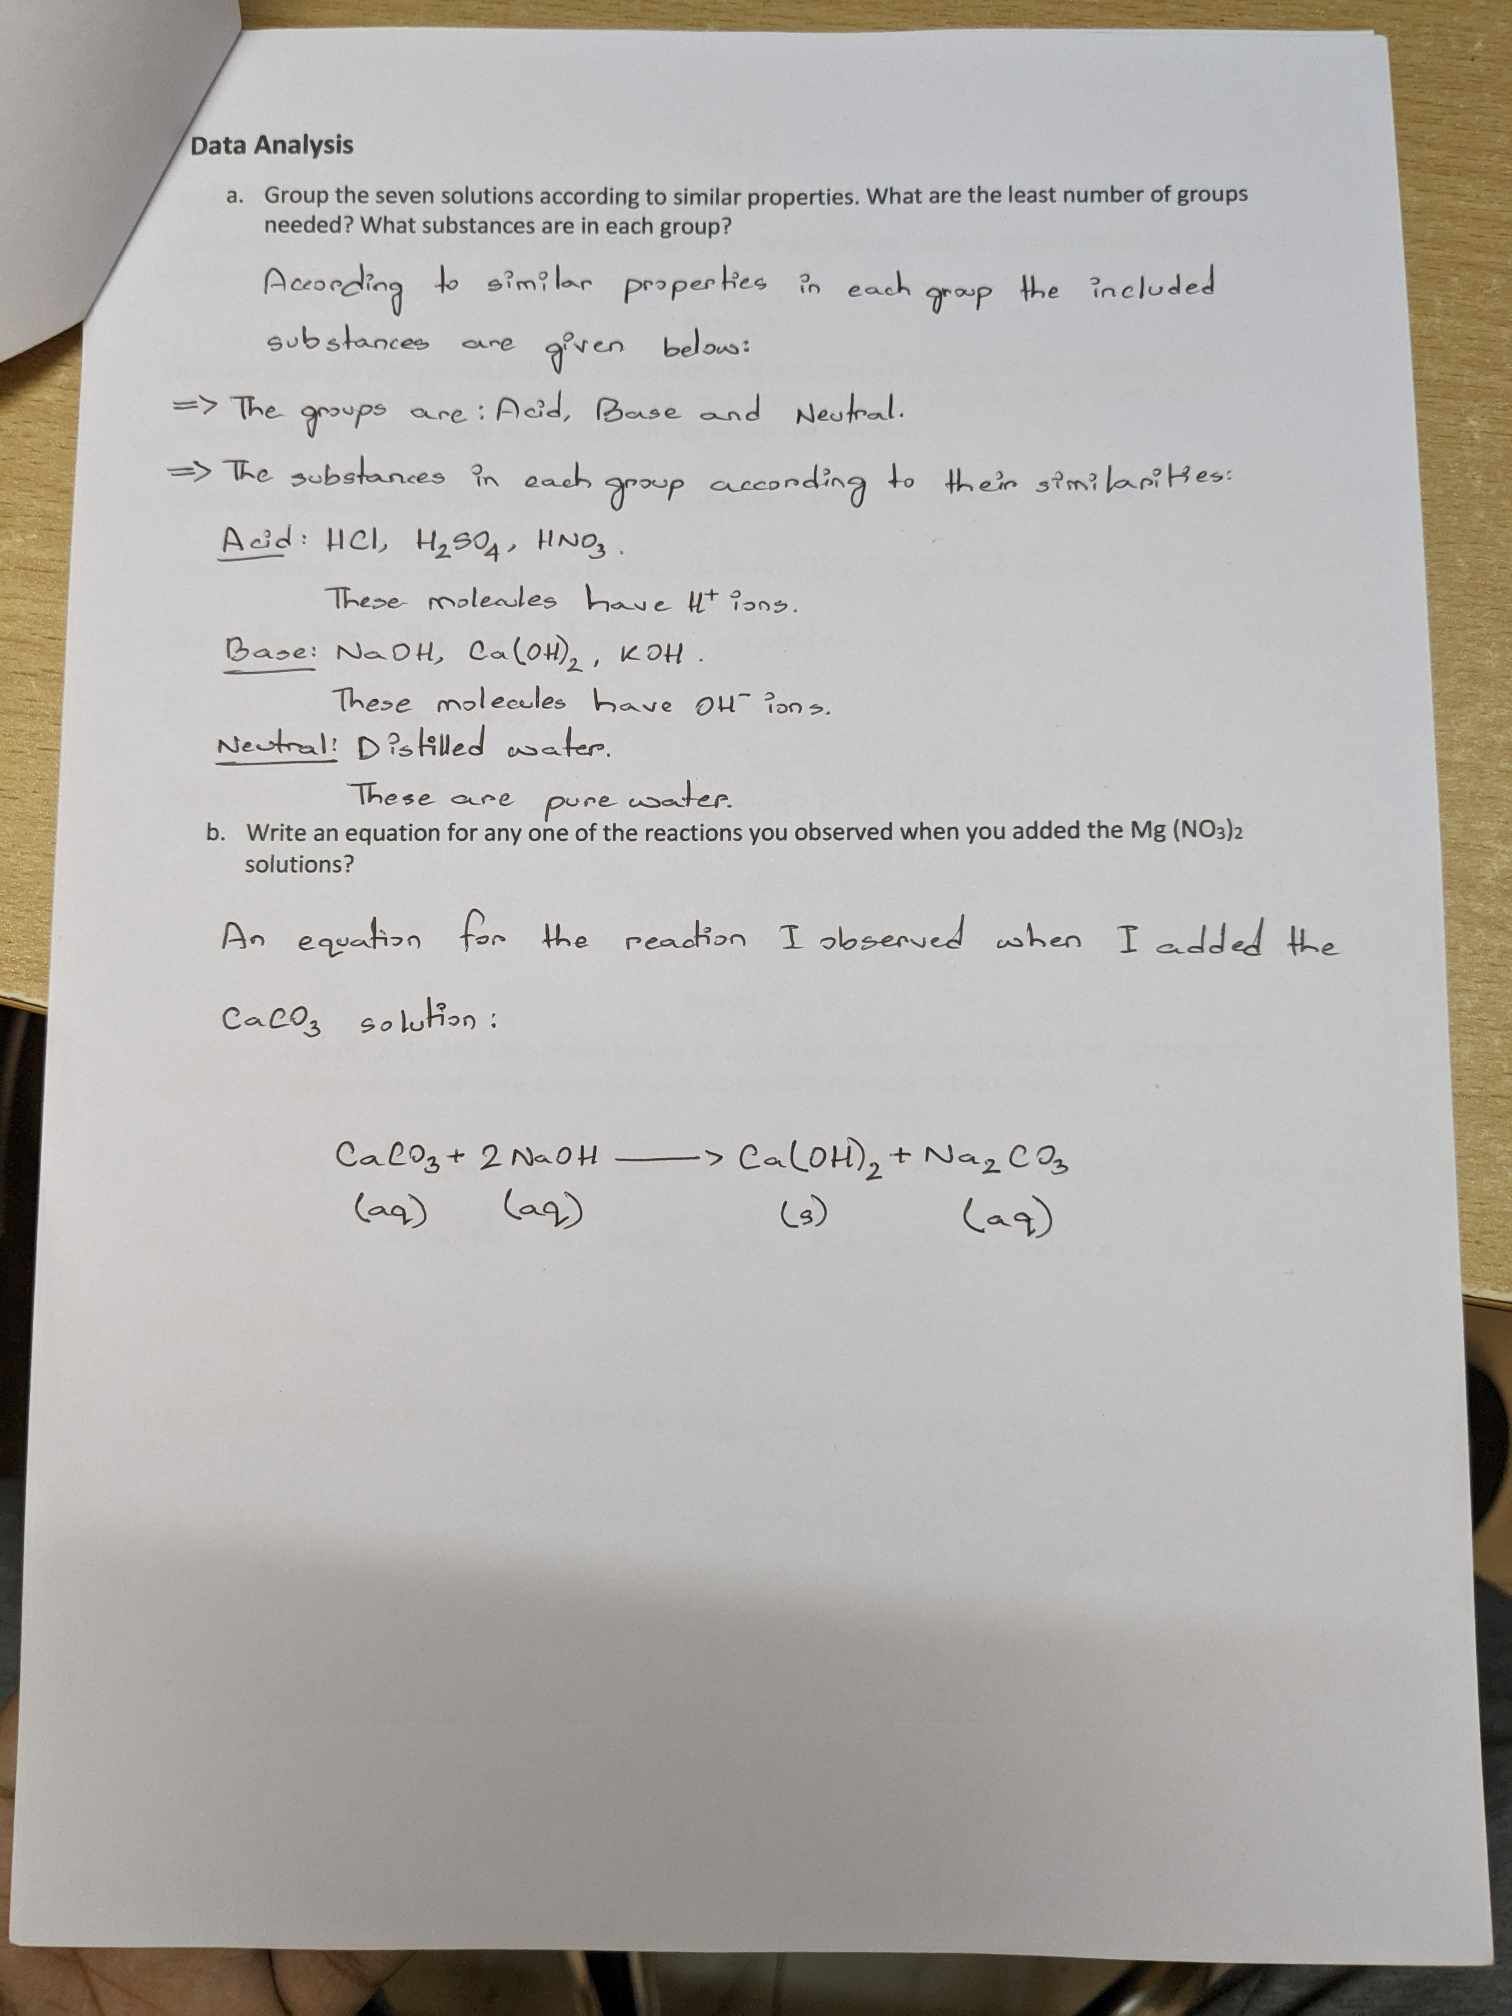 Data Analysis
a. Group the seven solutions according to similar properties. What are the least number of groups
needed? What substances are in each group?
According to similar properties in each group the included
substances are given below:
=> The groups are: Acid, Base and Neutral.
=> The substances in each group according to their similarities:
Acid: HCl, H₂SO₄, HNO₃.
These molecules have H⁺ ions.
Base: NaOH, Ca(OH)₂, KOH.
These molecules have OH⁻ ions.
Neutral: Distilled water.
These are pure water.
b. Write an equation for any one of the reactions you observed when you added the Mg (NO₃)₂
solutions?
An equation for the reaction I observed when I added the
CaCO₃ solution:
CaCO₃ + 2 NaOH —> Ca(OH)₂ + Na₂CO₃
(aq) (aq) (s) (aq)